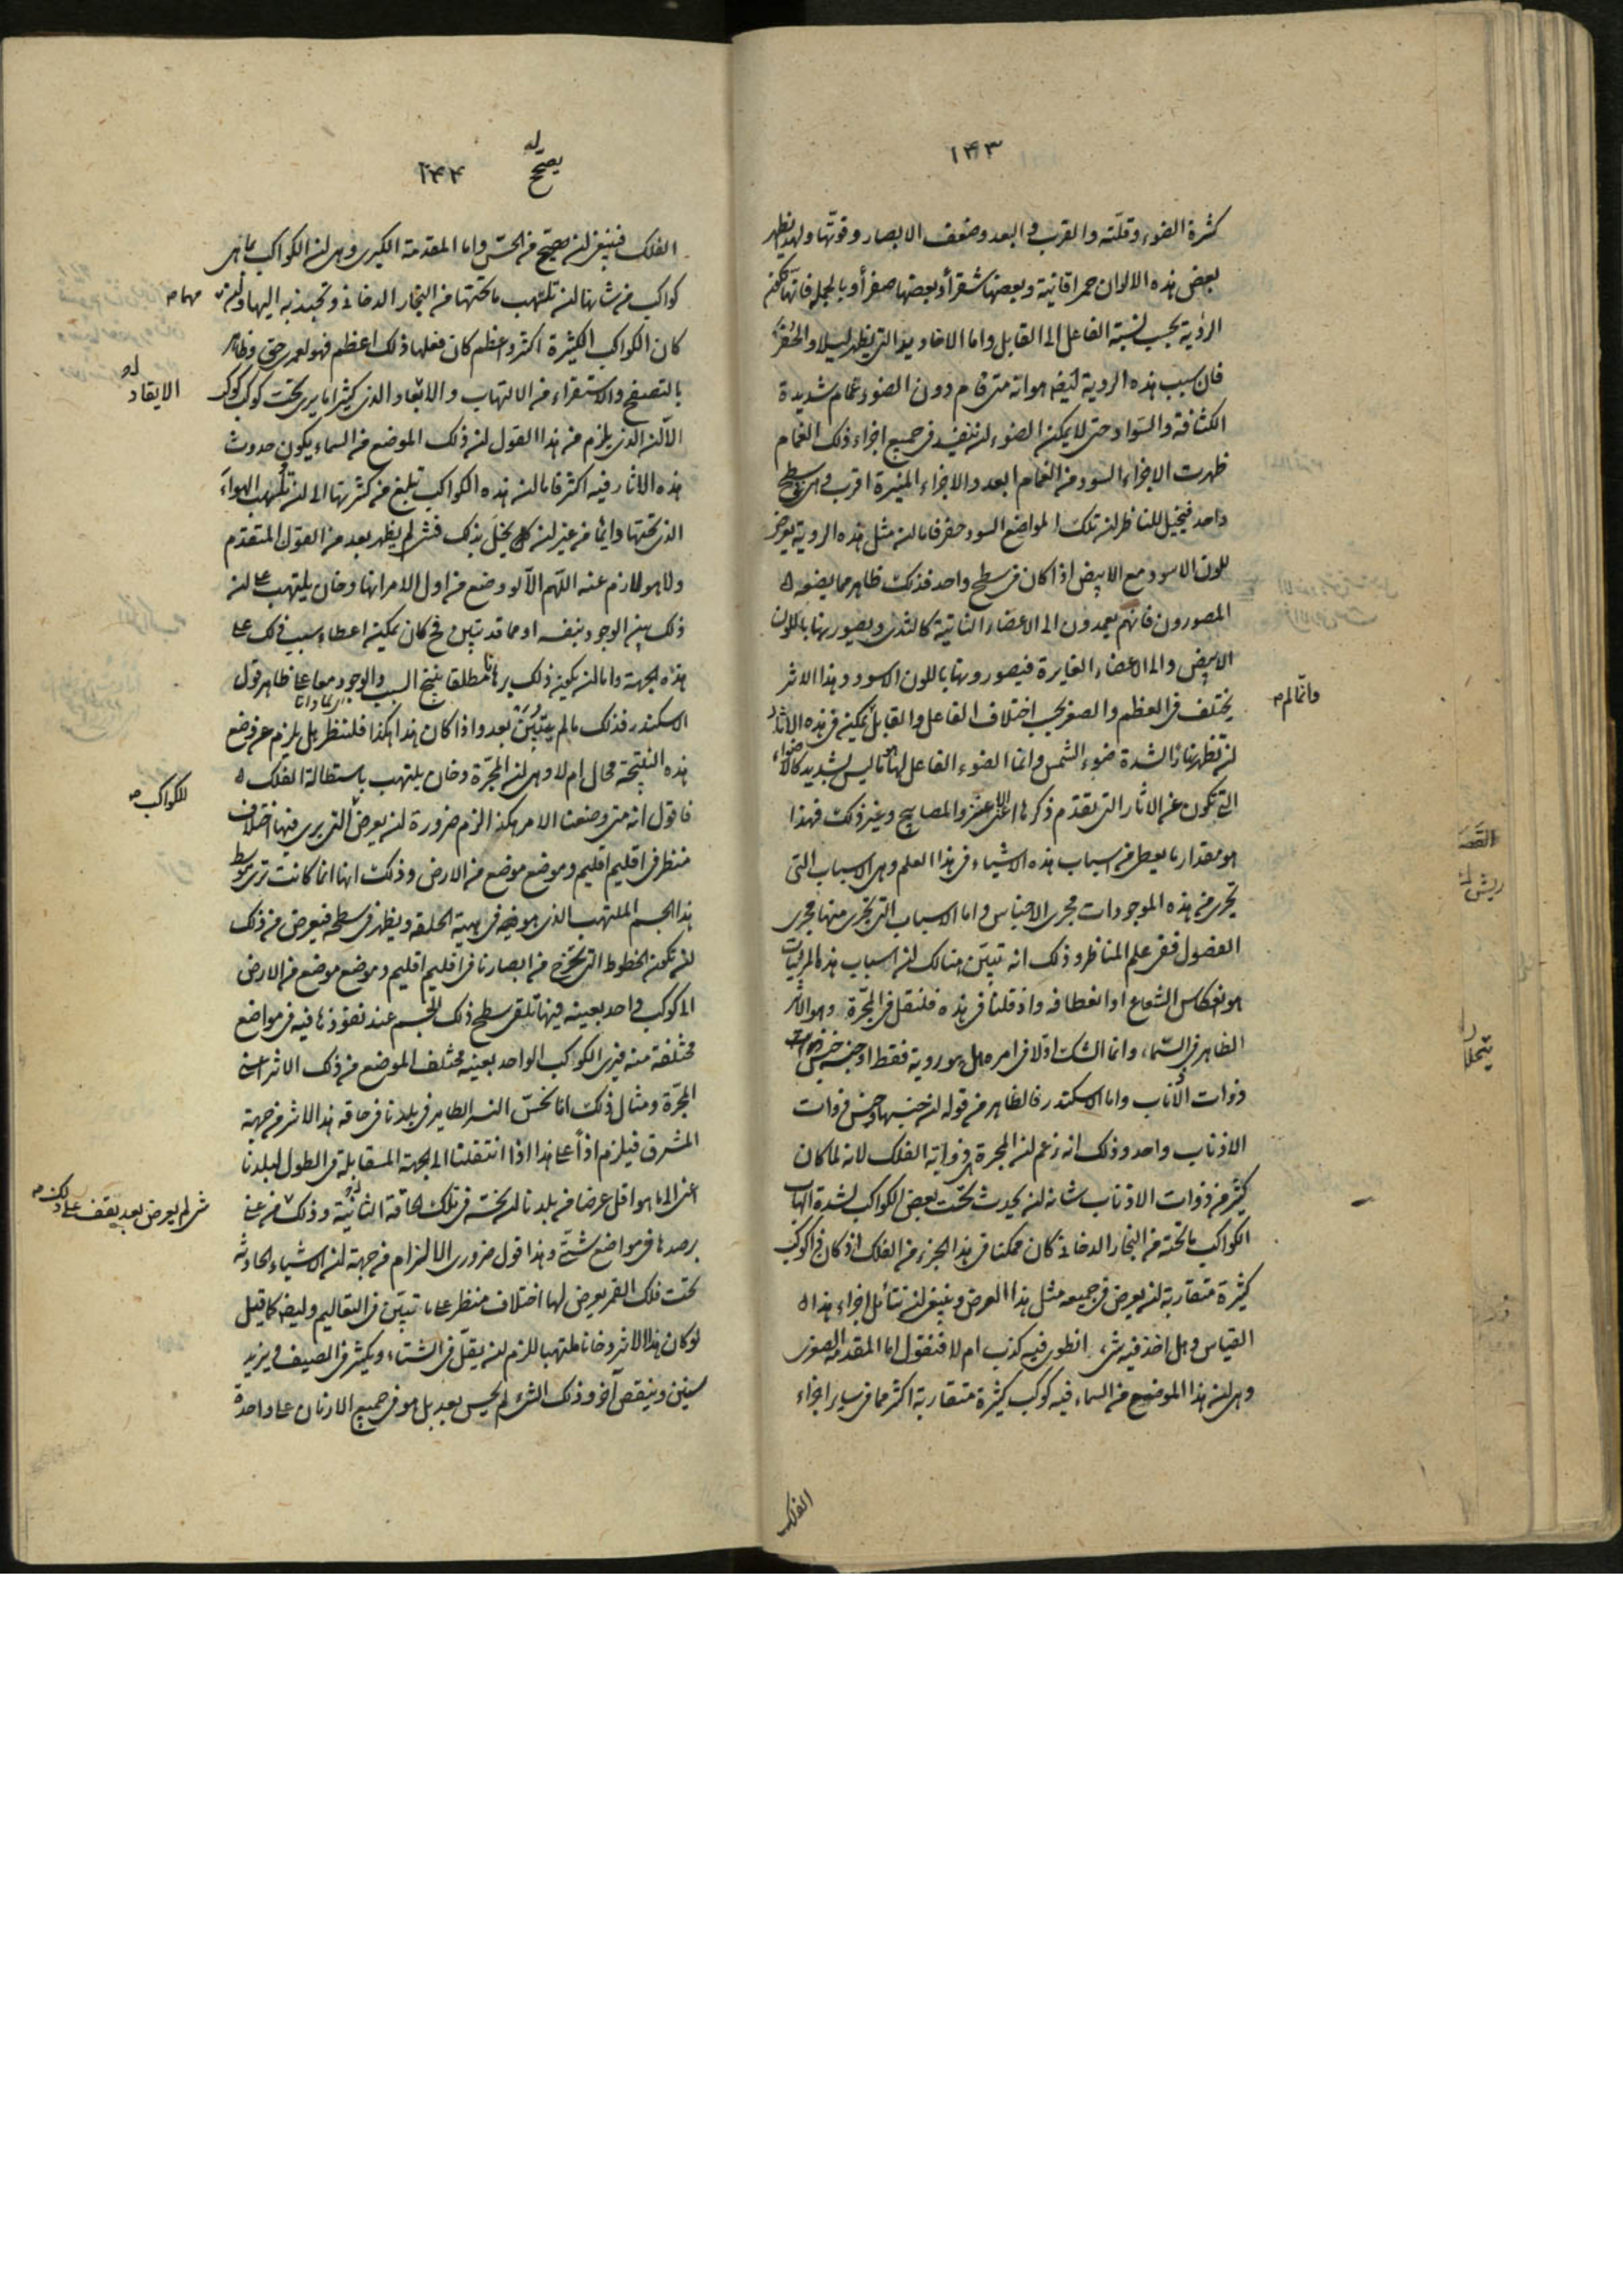 ١٤٣
كثرة الضوء وقلته والقرب والبعد وضعف الابصار وقوتها ولهذا يظهر
بعض هذه الالوان حمراء قانية وبعضها شقراء وبعضها صفراء وبالجملة فانها تمكن
الرؤية بحسب نسبة الفاعل الى القابل واما الاخاديد التى يظهر ليلا والحفر
فان سبب هذه الروية ايضا هو انه متى قام دون الضوء غمام شديدة
الكثافة والسواد حتى لا يمكن الضوء ان ينفذ فى جميع اجزاء ذلك الغمام
ظهرت الاجزاء السود من الغمام ابعد والاجزاء المنيرة اقرب وهى فى سطح
واحد فيخيل للناظر ان تلك المواضع السود حفر فاما ان مثل هذه الروية يعرض
للون الاسود مع الابيض اذا كان فى سطح واحد فذلك ظاهر مما يضعه
المصورون فانهم يعمدون الى الاعضاء الناتية كالثدى ويصورنها باللون
الابيض والى الاعضاء الغايرة فيصورونها باللون الاسود وهذا الاثر
يختلف فى العظم والصغر بحسب اختلاف الفاعل والقابل يمكن فى هذه الاثار
وانما لم
ان تظهر نهارا لشدة ضوء الشمس وانما الضوء الفاعل لها ليس بشديد كالاضواء
التى تكون عن الاثار التى تقدم ذكرها اعنى الاعنز والمصابيح وغير ذلك فهذا
هو مقدار ما يعطى من اسباب هذه الاشياء فى هذا العلم وهى الاسباب التى
تجرى من هذه الموجودات مجرى الاجناس واما الاسباب التى تجرى منها مجرى
الفصول ففى علم المناظر وذلك انه تبين هنالك ان اسباب هذه المرئيات
هو انعكاس الشعاع او انعطافه واذ قلنا فى هذه فلنقل فى المجرة وهو الاثر
الظاهر فى السماء وانما الشك اولا فى امره هل هو روية فقط او جنسه جنس
ذوات الأذناب واما الاسكندر فالظاهر من قوله ان جنسها وجنس ذوات
الاذناب واحد وذلك انه زعم ان المجرة هى ذواية الفلك لانه لما كان
كثير من ذوات الاذناب شانه ان يحدث تحت بعض الكواكب لشدة الهاب
الكواكب ما تحته من البخار الدخانى كان ممكنا فى هذا الجزء من الفلك اذ كان ذا كواكب
كثيرة متقاربة ان يعرض فى جميعه مثل هذا العرض وينبغى ان نتأمل اجزاء هذا
القياس وهل اخذ فيه شىء انطوى فيه كذب ام لا فنقول اما المقدمة الصغرى
وهى ان هذا الموضع من السماء فيه كوكب كثيرة متقاربة اكثر مما فى ساير اجزاء
الفلك
١٤٤
يصحّ له
الفلك فينبغى ان يصحّ من الحسّ واما المقدمة الكبرى وهى ان الكواكب بما هى
كواكب من شانها ان تلتهب ما تحتها من البخار الدخانى وتجذبه اليها وان
مهما
كان الكواكب الكثيرة اكثر واعظم كان فعلها ذلك اعظم فهو لعمرى حق وظاهر
بالتصفح والاستقراء من الالتهاب والاتقاد الذى كثيرا ما يرى تحت كوكب كوكب
الايقاد له
الا ان الذى يلزم من هذا القول ان ذلك الموضع من السماء يكون حدوث
هذه الاثار فيه اكثر فاما ان هذه الكواكب تبلغ من كثرتها الى ان تلهب الهواء
الذى تحتها دائما من غير ان يخل بذلك فشىء لم يظهر بعد من القول المتقدم
ولا هو لازم عنه اللهم الا لو وضع من اول الامر انها دخان يلتهب على ان
ذلك بين الوجود بنفسه او مما قد تبين فح كان يمكن اعطاء سبب ذلك على
هذه الجهة واما ان يكون ذلك برهانا مطلقا ينتج السبب والوجود معا على ظاهر قول
الاسكندر فذلك ما لم يتبيّن بعد واذا كان هذا هكذا فلننظر هل يلزم عن وضع
هذه النتيجة محال ام لا وهى ان المجرة دخان يلتهب باستطالة الفلك
للكواكب
فاقول انه متى وضعنا الامر هكذا لزم ضرورة ان يعرض التى يرى فيها اختلاف
منظر فى اقليم اقليم وموضع موضع من الارض وذلك انها انما كانت ترى بتوسط
هذا الجسم الملتهب الذى هو فى هيئة الحلقة ويظهر فى سطحه فيعرض من ذلك
ان تكون الخطوط التى تخرج من ابصارنا فى اقليم اقليم وموضع موضع من الارض
الى كوكب واحد بعينه فيها تلقى سطح ذلك الجسم عند نفوذها فيه فى مواضع
مختلفة منه فيرى الكواكب الواحد بعينه مختلف الموضع من ذلك الاثر اعنى
المجرة ومثال ذلك انا نحسّ النسر الطاير فى بلدنا فى حافة هذا الاثر من جهة
المشرق فيلزم اذاً على هذا اذا انتقلنا الى الجهة المقابلة فى الطول لبلدنا
اعنى الى ما هو اقل عرضا من بلدنا ان نحسه فى تلك الحافة الثانية وذلك من عنى
شىء لم يعرض بعد يقف على ذلك
برصدها فى مواضع شتى وهذا قول ضرورى الالزام من جهة ان الاشياء الحادثة
تحت فلك القمر يعرض لها اختلاف منظر على ما تبين فى التعاليم وايضا كما قيل
لو كان هذا الاثر دخانا ملتهبا للزم ان يقلّ فى الشتاء ويكثر فى الصيف ويزيد
سنين وينقص آخر وذلك الشىء لم يحس بعد بل هو فى جميع الازمان على واحدة